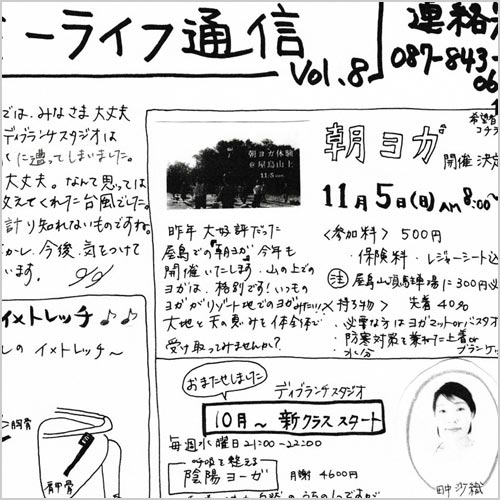 ーライフ通信
Vol.8
連絡
087-843-
06
では、みなさま大丈夫
ディブランチスタジオは
に遭ってしまいました。
大丈夫。なんて思っては
教えてくれた台風でした。
計り知れないものですね。
かし、今後、気をつけて
います。
イメトレッチ♪♪
しの イメトレッチ〜
胸骨
肩甲骨
朝ヨガ体験
@屋島山上
11/5 (sun)
朝ヨガ
希望者
開催決定
11月5日(日) AM 8:00〜
昨年 大好評だった
屋島での"朝ヨガ"今年も
開催いたします。山の上での
ヨガは、格別です！いつもの
ヨガがリゾート地でのヨガみたい!!
大地と天の恵みを体全体で
受け取ってみませんか？
<参加料> 500円
・保険料・レジャーシート込
注 屋島山頂駐車場に300円必
<持ち物> 先着40名
・必要な方はヨガマットorバスタオ
・防寒対策を兼ねた上着or
・水分
ブランケッ
おまたせしました
ディブランチスタジオ
10月〜 新クラス スタート
毎週水曜日 21:00-22:00
呼吸を整える
陰陽ヨーガ
月謝 4600円
田中沙織